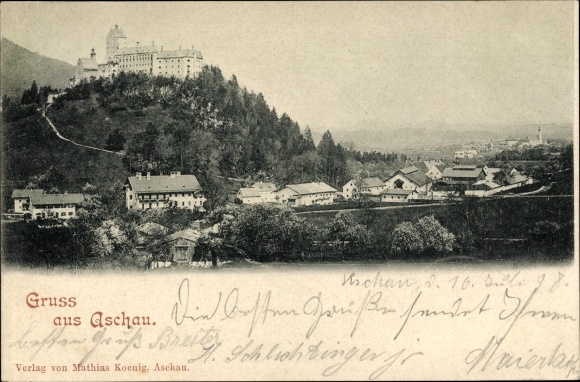 Aschau, d. 16. Juli 98.
Gruss
aus Aschau.
Die besten Grüße sendet Ihnen
besten Gruß
Verlag von Mathias Koenig, Aschau.